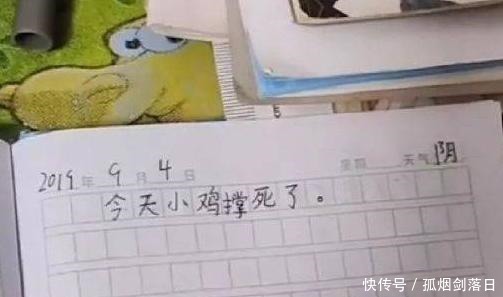 2019年 9月 4日 星期 天气 阴
今天小鸡撑死了。
快传号/孤烟剑落日